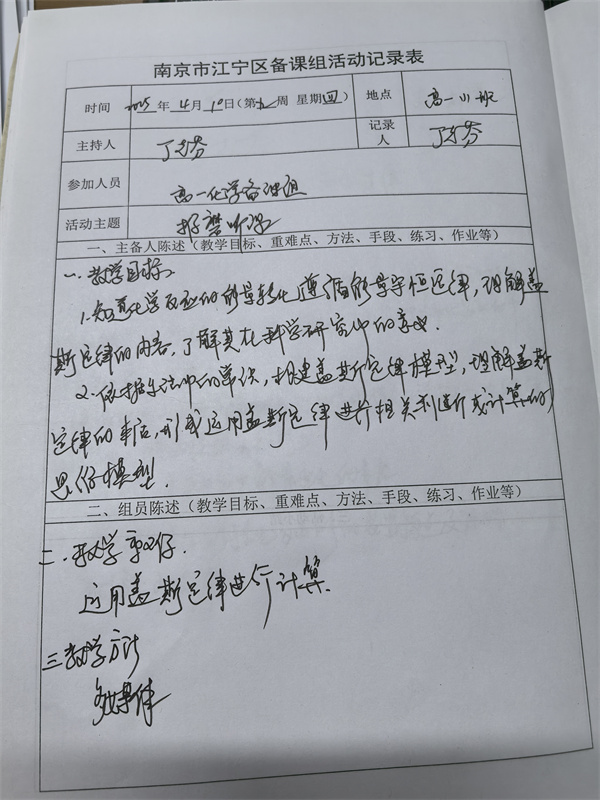 南京市江宁区备课组活动记录表
时间 2025年4月10日(第 周 星期四) 地点 高一11班
主持人 丁 芬 记录人 丁 芬
参加人员 高一化学备课组
活动主题 听课
一、主备人陈述(教学目标、重难点、方法、手段、练习、作业等)
一.教学目标
1.知道化学反应的能量转化遵循能量守恒定律,理解盖
斯定律的内容,了解其在科学研究中的意义.
2.依据 的 ,构建盖斯定律模型,理解盖斯
定律的本质,形成运用盖斯定律进行相关判断或计算的
思维模型.
二、组员陈述(教学目标、重难点、方法、手段、练习、作业等)
二.教学重难点.
运用盖斯定律进行计算.
三.教学方法
多媒体